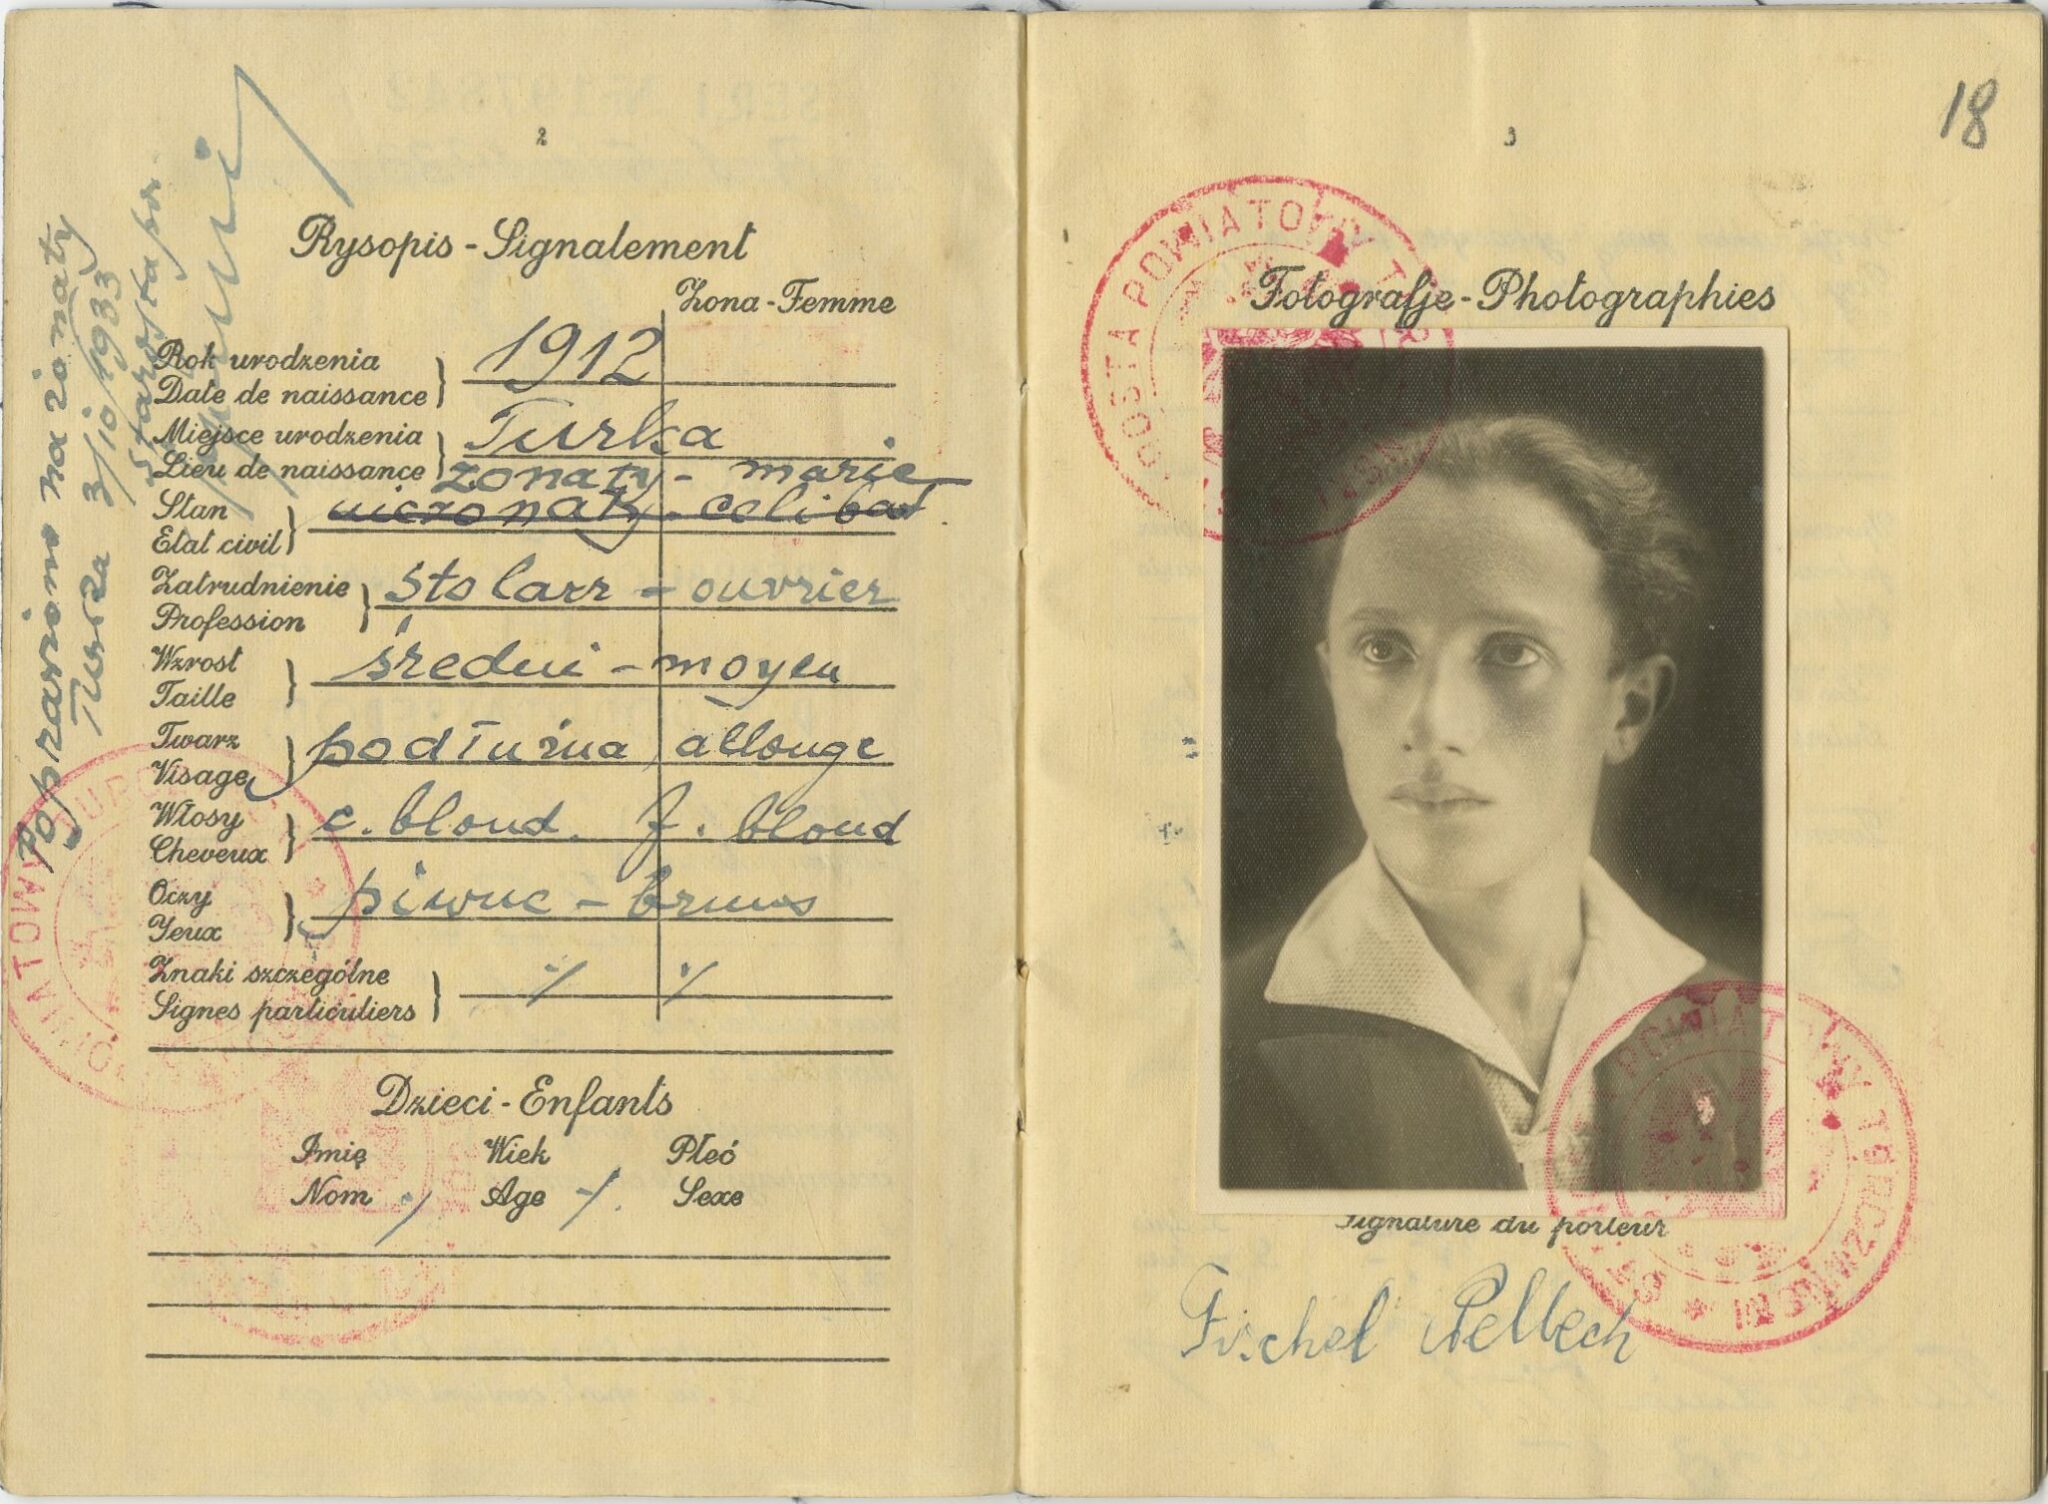 2
Rysopis - Signalement
Żona - Femme
Rok urodzenia
Date de naissance
1912
Miejsce urodzenia
Lieu de naissance
Turka
żonaty - marie
Stan
Etat civil
nieżonaty - celibat
Zatrudnienie
Profession
stolarz - ouvrier
Wzrost
Taille
średni - moyen
Twarz
Visage
podłużna allonge
Włosy
Cheveux
c. blond. f. blond
Oczy
Yeux
piwne - bruns
Znaki szczególne
Signes particuliers
Dzieci - Enfants
Imię Wiek Płeć
Nom Age Sexe
Poprawiono na żonaty
Turka 3/10 1933
Starosta pow.
3
18
Fotografje - Photographies
Signature du porteur
Fischel Pellech
STAROSTA POWIATOWY TURCZAŃSKI